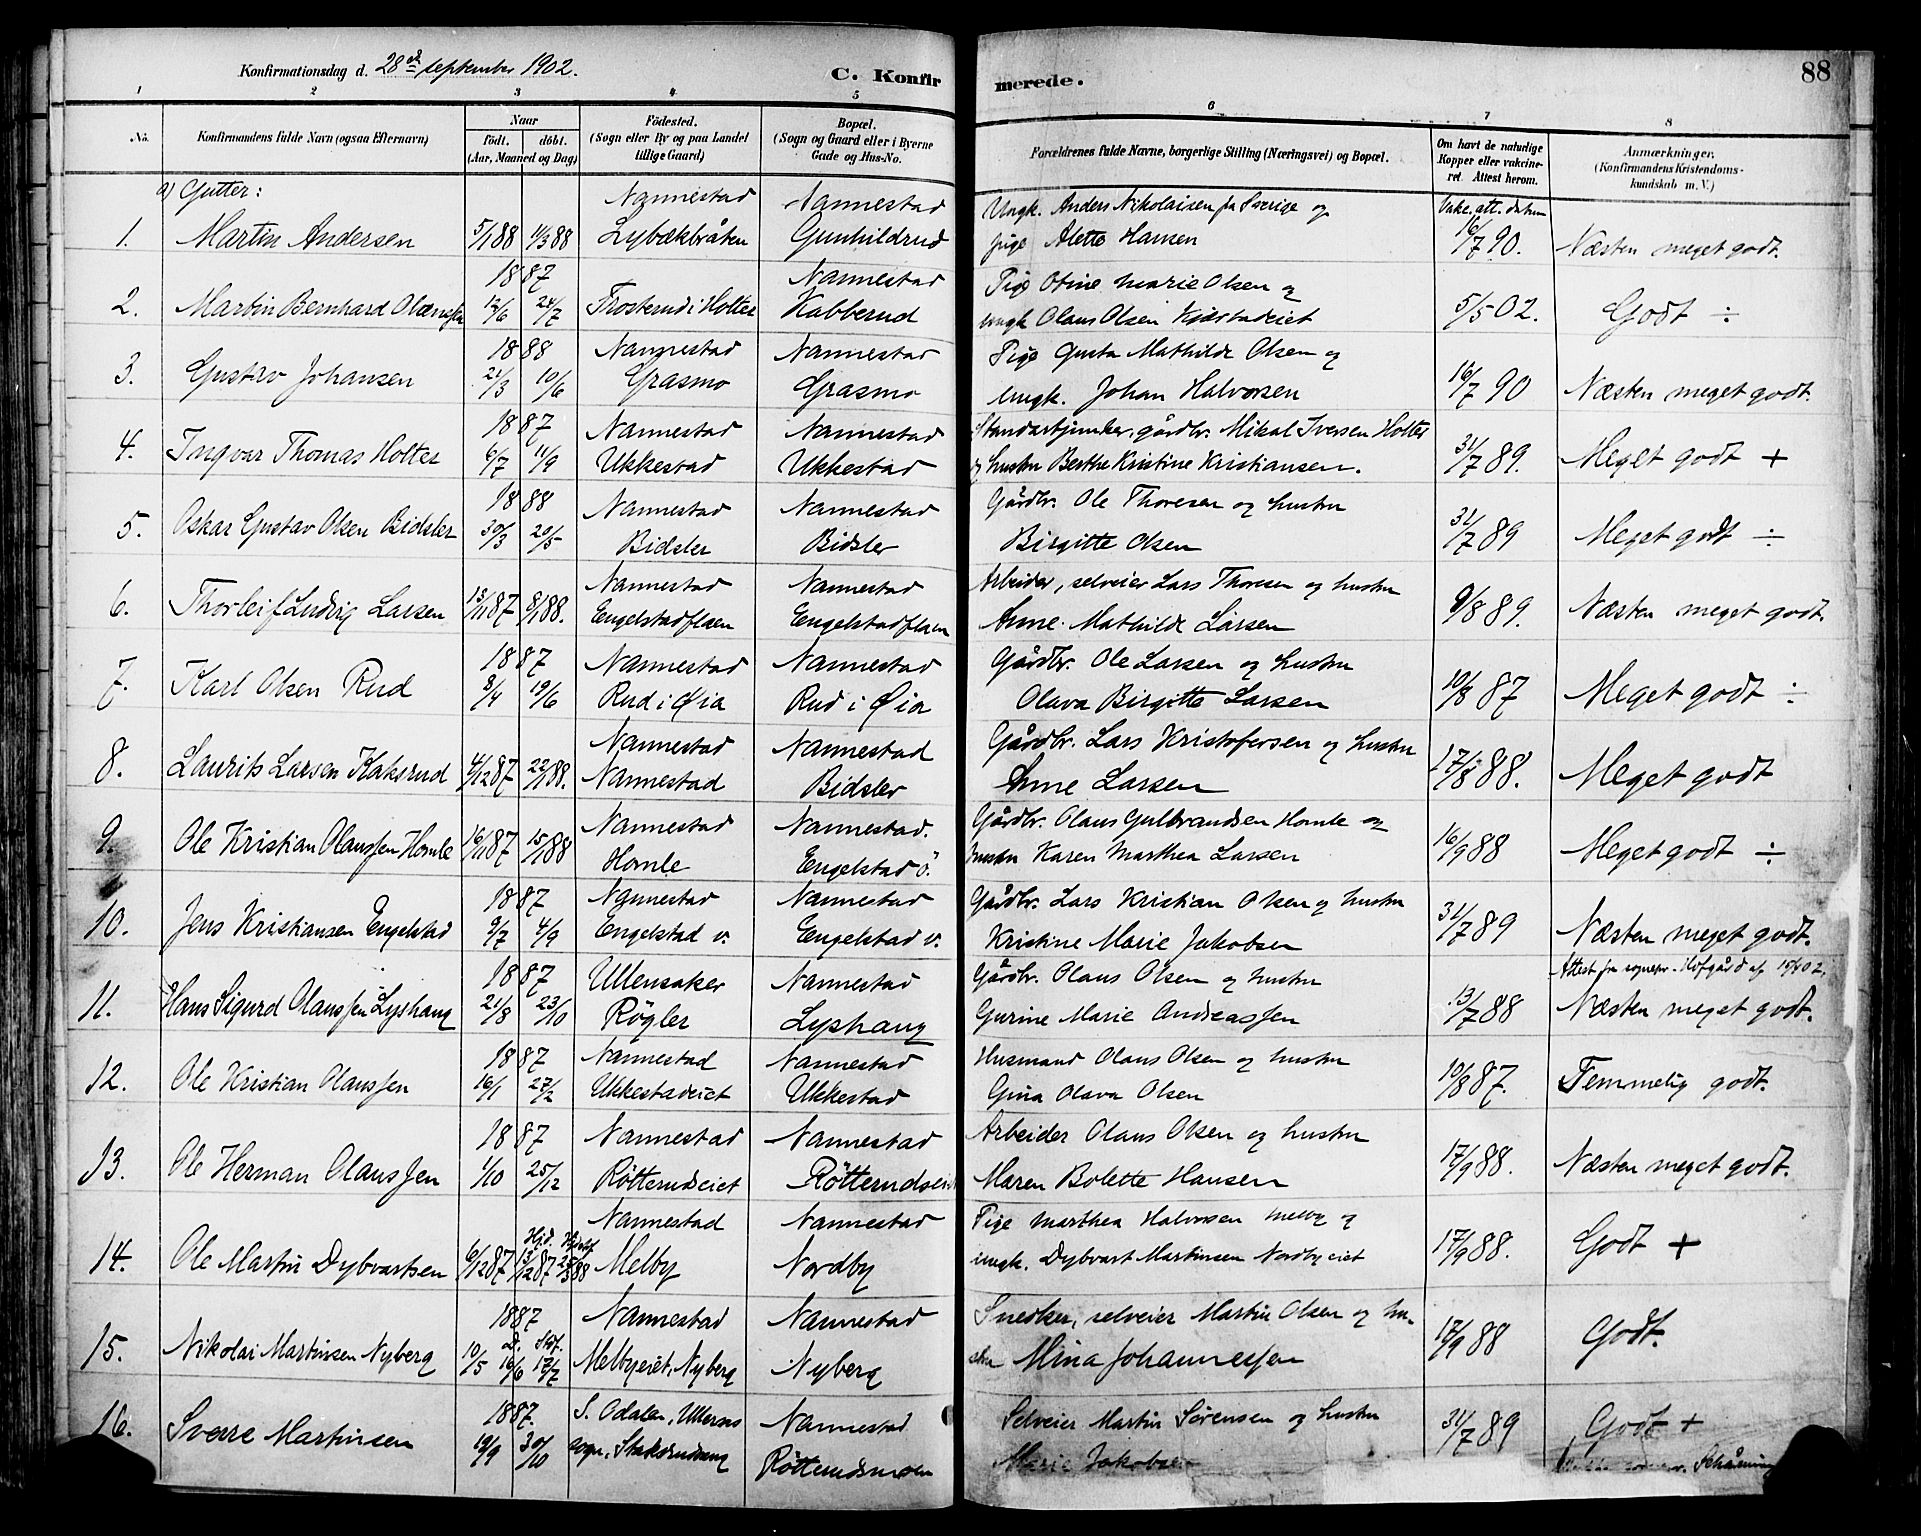 Konfirmationsdag d. 28de september 1902.
C. Konfirmerede.
88
1 2 3 4 5 6 7 8
No.
Konfirmandens fulde Navn (ogsaa Efternavn)
Naar
födt. döbt.
(Aar, Maaned og Dag)
Födested.
(Sogn eller By og paa Landet
tillige Gaard)
Bopæl.
(Sogn og Gaard eller i Byerne
Gade og Hus-No.
Forældrenes fulde Navne, borgerlige Stilling (Næringsvei) og Bopæl.
Om havt de naturlige
Kopper eller vakcine-
ret. Attest herom.
Anmærkninger.
(Konfirmandens Kristendoms-
kundskab m. V.)
a) Gutter:
Nannestad Nannestad Ungk. Anders Nikolaisen fra Sverige og Vakc. att. datum
1. Martin Andersen 5/1 88 11/3 88 Lybækbråten Gunhildrud pige Alette Hansen 16/7 90. Næsten meget godt.
1887 Nannestad Pige Otine Marie Olsen og
2. Martin Bernhard Olaussen 12/6 24/7 Trosterud i Holter Kabberud ungk Olaus Olsen Kjøstadeiet 5/5 02. Godt ÷
1888 Nannestad Nannestad Pige Gusta Mathilde Olsen og
3. Gustav Johansen 21/3 10/6 Grasmo Grasmo ungk. Johan Halvorsen 16/7 90 Næsten meget godt.
1887 Nannestad Nannestad Standartjunker, gårdbr. Mikal Iversen Holter
4. Ingvar Thomas Holter 6/7 11/9 Ukkestad Ukkestad og hustru Berthe Kristine Kristiansen. 31/7 89. Meget godt +
1888 Nannestad Nannestad Gårdbr. Ole Thoresen og hustru
5. Oskar Gustav Olsen Bidsler 30/3 20/5 Bidsler Bidsler Birgitte Olsen 31/7 89 Meget godt ÷
Nannestad Nannestad Arbeider, selveier Lars Thoresen og hustru
6. Thorleif Ludvig Larsen 13/11 87 8/1 88. Engelstadflaen Engelstadflaen Anne Mathilde Larsen 9/8 89. Næsten meget godt.
1887 Nannestad Nannestad Gårdbr. Ole Larsen og hustru
7. Karl Olsen Rud 8/4 19/6 Rud i Øia Rud i Øia Olava Birgitte Larsen 10/8 87 Meget godt ÷
Nannestad Nannestad Gårdbr. Lars Kristofersen og hustru
8. Laurits Larsen Kaksrud 4/12 87 22/1 88. Nannestad Bidsler Anne Larsen 17/8 88. Meget godt
Nannestad Nannestad. Gårdbr. Olaus Gulbrandsen Homle og
9. Ole Kristian Olaussen Homle 16/11 87 15/1 88 Homle Engelstad ö. hustru Karen Marthea Larsen 16/9 88 Meget godt ÷
1887 Nannestad Nannestad Gårdbr. Lars Kristian Olsen og hustru
10. Jens Kristiansen Engelstad 9/7 4/9 Engelstad v. Engelstad v. Kristine Marie Jakobsen 31/7 89 Næsten meget godt.
1887 Ullensaker Nannestad Gårdbr. Olaus Olsen og hustru Attest fra sognepr. Hofgård af
11. Hans Sigurd Olaussen Lyshaug 21/8 23/10 Røgler Lyshaug Gurine Marie Andreassen 13/7 88 Næsten meget godt.
1887 Nannestad Nannestad Husmand Olaus Olsen og hustru
12. Ole Kristian Olaussen 16/1 27/2 Ukkestadeiet Ukkestad Gina Olava Olsen 10/8 87. Temmelig godt.
1887 Nannestad Nannestad Arbeider Olaus Olsen og hustru
13. Ole Herman Olaussen 1/10 25/12 Røtterudseiet Røtterudseiet Maren Bolette Hansen 17/9 88. Næsten meget godt.
Nannestad Nannestad Pige Marthea Halvorsen Melby og
14. Ole Martin Dybvartsen 6/12 87 Hjd. 13/12 87 Melby Nordby ungk. Dybvart Martinsen Nordbyeiet 17/9 88. Godt +
1887 Nannestad Nannestad Snedker, selveier Martin Olsen og hu-
15. Nikolai Martinsen Nyberg 10/5 16/6 17/7 Melbyeiet, Nyberg Nyberg stru Mina Johannessen 17/9 88 Godt.
1887. S. Odalen, Ullerns Nannestad Selveier Martin Sørensen og hustru
16. Sverre Martinsen 19/9 30/10 sogn, Røtterudsmoen Marie Jakobsen 31/7 89 Godt +